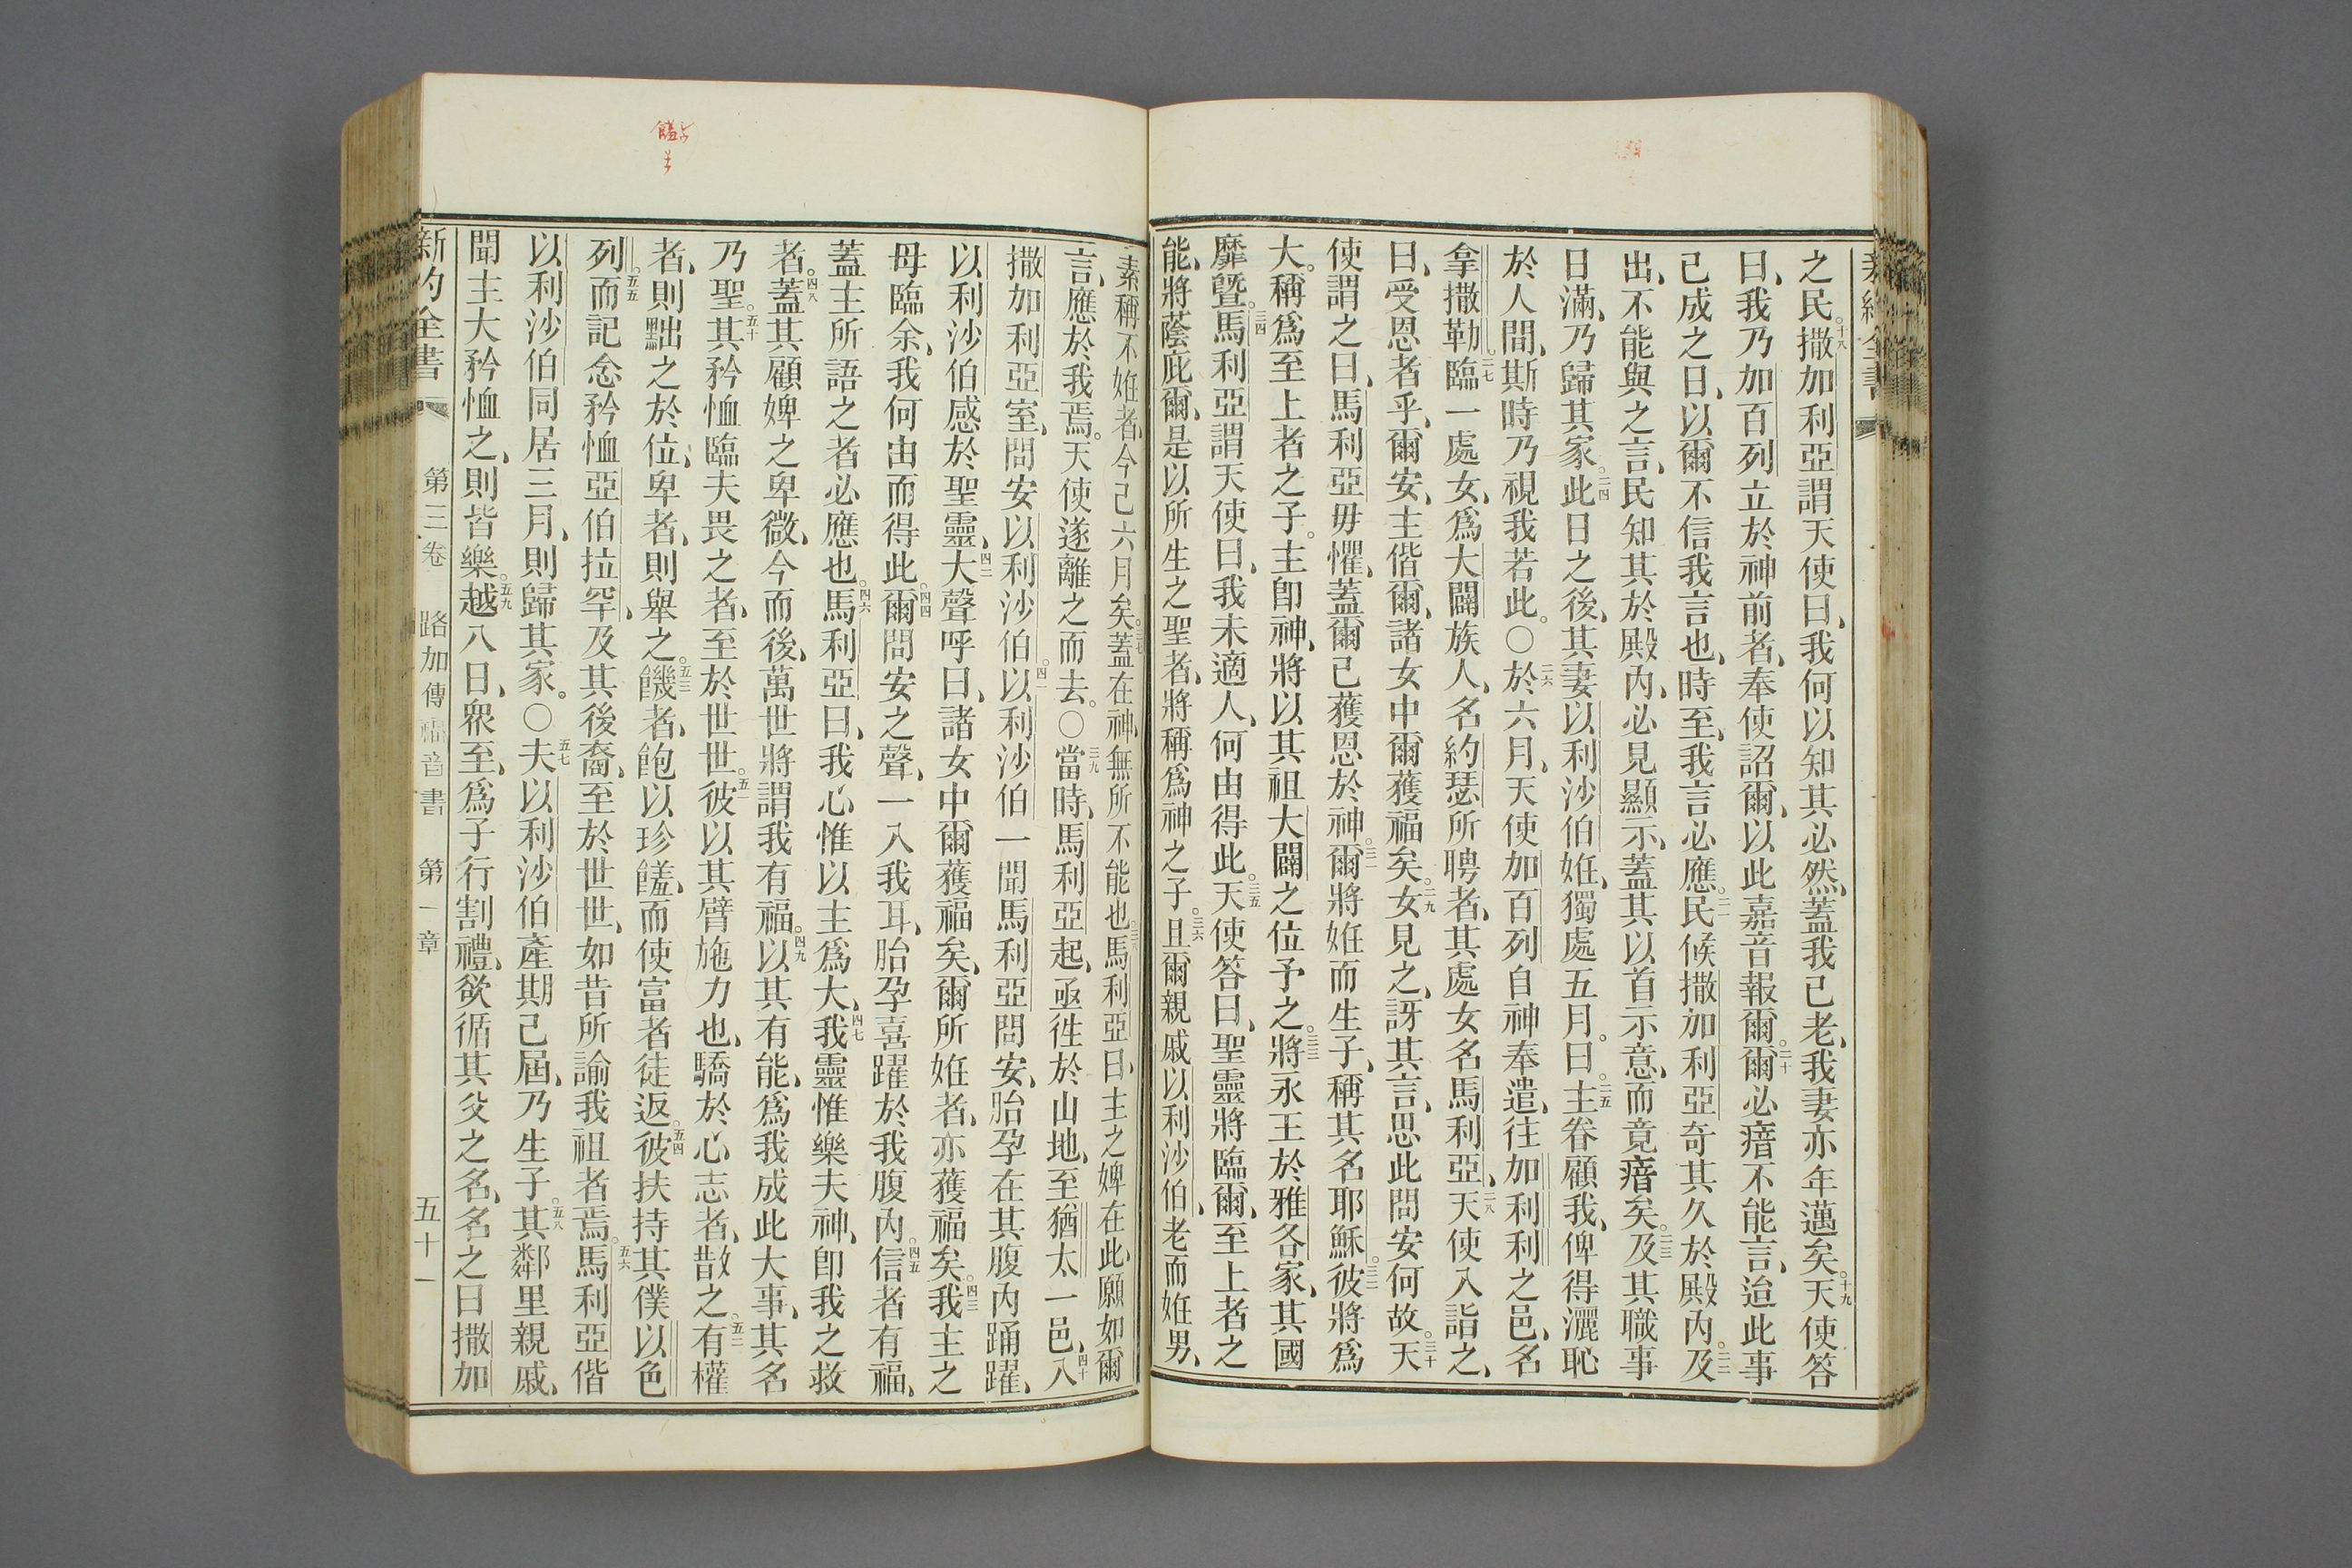 之民。十八撒加利亞謂天使曰、我何以知其必然、蓋我已老、我妻亦年邁矣。十九天使答
曰、我乃加百列立於神前者、奉使詔爾、以此嘉音報爾。二十爾必瘖不能言、迨此事
已成之日、以爾不信我言也、時至、我言必應。二一民候撒加利亞奇其久於殿內。二二及
出、不能與之言、民知其於殿內、必見顯示、蓋其以首示意、而竟瘖矣。二三及其職事
日滿、乃歸其家。二四此日之後、其妻以利沙伯姙、獨處五月。曰。二五主眷顧我、俾得灑恥
於人間、斯時乃視我若此。○二六於六月、天使加百列自神奉遣、往加利利之邑、名
拿撒勒。二七臨一處女、爲大闢族人、名約瑟所聘者、其處女名馬利亞、二八天使入詣之、
曰、受恩者乎、爾安、主偕爾、諸女中爾獲福矣。二九女見之、訝其言、思此問安何故。三十天
使謂之曰、馬利亞毋懼、蓋爾已獲恩於神。三一爾將姙而生子、稱其名耶穌。三二彼將爲
大。稱爲至上者之子。主卽神、將以其祖大闢之位予之。三三將永王於雅各家、其國
靡曁。三四馬利亞謂天使曰、我未適人、何由得此。三五天使答曰、聖靈將臨爾、至上者之
能、將蔭庇爾、是以所生之聖者、將稱爲神之子。三六且爾親戚以利沙伯、老而姙男、
素稱不姙者、今已六月矣。三七蓋在神、無所不能也。三八馬利亞曰、主之婢在此、願如爾
言、應於我焉。天使遂離之而去。○三九當時、馬利亞起、亟徃於山地、至猶太一邑、四十入
撒加利亞室、問安以利沙伯。四一以利沙伯一聞馬利亞問安、胎孕在其腹內踊躍、
以利沙伯感於聖靈、四二大聲呼曰、諸女中爾獲福矣、爾所姙者、亦獲福矣。四三我主之
母臨余、我何由而得此。四四爾問安之聲、一入我耳、胎孕喜躍於我腹內。四五信者有福、
蓋主所語之者必應也。四六馬利亞曰、我心惟以主爲大、四七我靈惟樂夫神、卽我之救
者。四八蓋其顧婢之卑微、今而後、萬世將謂我有福。四九以其有能、爲我成此大事、其名
乃聖。五十其矜恤臨夫畏之者、至於世世。五一彼以其臂施力也、驕於心志者、散之。五二有權
者、則黜之於位、卑者、則舉之。五三饑者、飽以珍饈、而使富者徒返。五四彼扶持其僕以色
列。五五而記念矜恤亞伯拉罕、及其後裔、至於世世、如昔所諭我祖者焉。五六馬利亞偕
以利沙伯同居三月、則歸其家。○五七夫以利沙伯產期已屆、乃生子。五八其鄰里親戚、
聞主大矜恤之、則皆樂。五九越八日、衆至、爲子行割禮、欲循其父之名、名之曰撒加
新約全書 第三卷 路加傳福音書 第一章 五十一